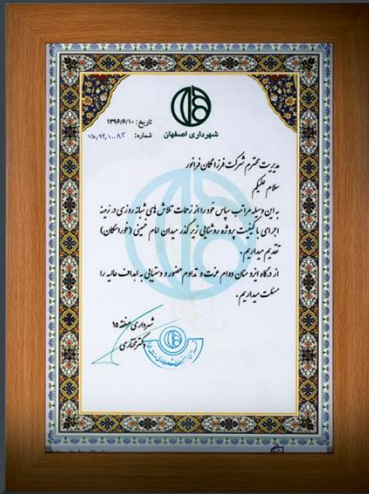 شهرداری اصفهان
تاریخ: ۱۳۹۶/۶/۱۰
شماره:
مدیریت محترم شرکت فرزانگان فرانور
سلام علیکم
به این وسیله مراتب سپاس خود را از زحمات و تلاش های شبانه روزی در زمینه
اجرای با کیفیت پروژه روشنایی زیرگذر میدان امام حسین (خوراسگان)
تقدیم میداریم.
از درگاه ایزد منان دوام عزت و تداوم حضور و دستیابی به اهداف عالیه را
مسئلت میداریم.
شهرداری منطقه ۱۵